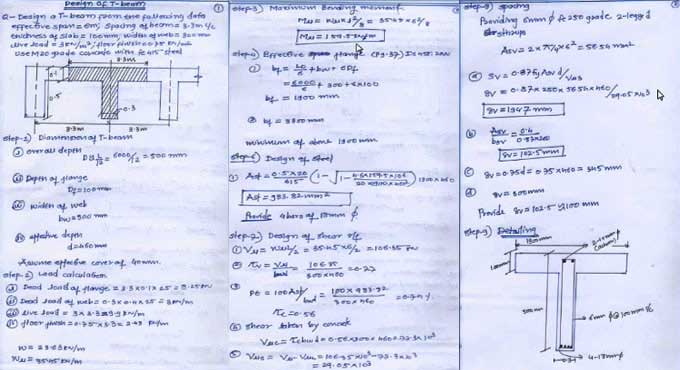 Design of T-beam
Q- Design a T-beam from the following data
effective span = 6m, spacing of beam = 3.3m c/c
thickness of slab = 100mm, width of web = 300mm
live load = 3kN/m², floor finish = 0.75 kN/m²
Use M20 grade concrete with fe 415 steel
3.3m
0.5
0.3
3.3m
3.3m
Step-1) Dimension of T-beam
i) overall depth
= 6000/12 = 500 mm
ii) Depth of flange
Df = 100mm
iii) width of web
bw = 300mm
iv) effective depth
d = 460mm
Assume effective cover of 40mm.
Step-2) Load calculation
i) Dead load of flange = 3.3×0.1×25 = 8.25
ii) Dead load of web = 0.3×0.4×25 = 3kN/m
iii) live load = 3×3.3 = 9.9kN/m
iv) floor finish = 0.75×3.3 = 2.48 kN/m
W = 23.63kN/m
Wu = 35.45kN/m
Step-3) Maximum Bending moment
Mu = Wul²/8 = 35.45×6²/8
Mu = 159.53kN/m
Step-4) Effective flange (Pg.37) IS 456:2000
① bf = lo/6 + bw + 6Df
= 6000/6 + 300 + 6×100
bf = 1900 mm
② bf = 3300mm
minimum of above 1900mm
Design of Steel
Ast = 983.82mm²
Provide 4 bars of 18mm ϕ
Step-7) Design of shear
① Vu = Wul/2 = 35.45×6/2 = 106.35 kN
② τv = Vu/bwd = 106.35/300×460 = 0.77
③ Pt = 100Ast/bwd = 100×983.82/300×460 = 0.71%
τc = 0.56
④ Shear taken by concrete
Vuc = τcbwd = 0.56×300×460 = 77.3×10³
⑤ Vus = Vu - Vuc = 106.35×10³ - 77.3×10³
= 29.05×10³
Step-8) Spacing
Providing 6mm ϕ fe 250 grade 2-legged
stirrups
Asv = 2×π/4×6² = 56.54 mm²
ⓐ Sv = 0.87fyAsvd/Vus
Sv = 0.87×250×56.54×460/29.05×10³
Sv = 194.7 mm
ⓑ Asv/bSv = 0.4/0.87×250
Sv = 102.5mm
ⓒ Sv = 0.75d = 0.75×460 = 345mm
ⓓ Sv = 300mm
Provide Sv = 102.5 ≃ 100 mm
Step-9) Detailing
100mm
500mm
6mm ϕ @ 100mm c/c
0.3